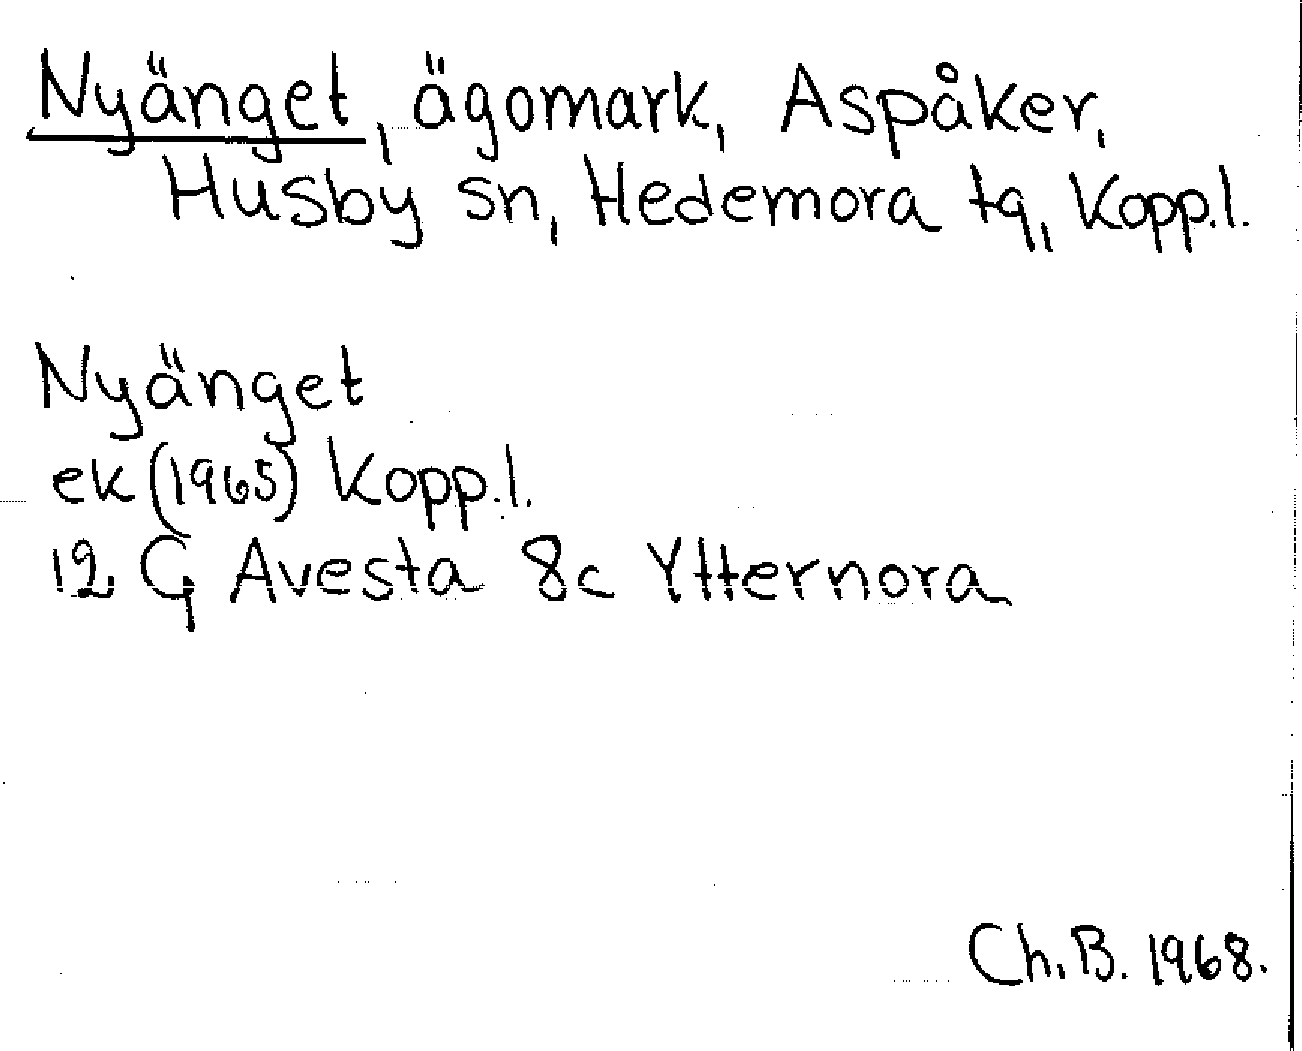 Nyänget, ägomark, Aspåker,
Husby sn, Hedemora tg, Kopp.l.
Nyänget
ek (1965) Kopp.l.
12 G Avesta 8c Ytternora
Ch.B. 1968.